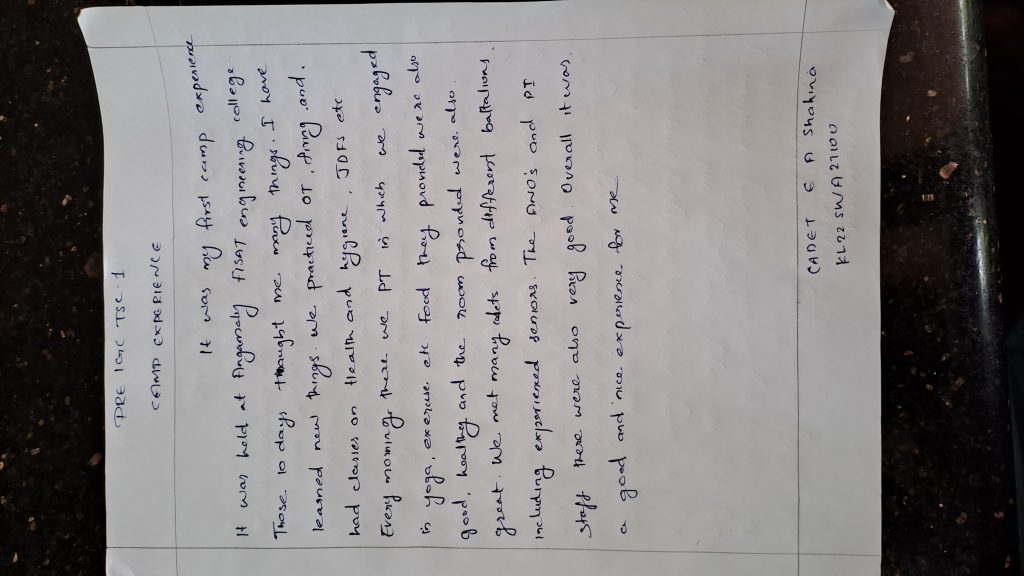 PRE IGC TSC-1
CAMP EXPERIENCE
It was my first camp experience
It was held at Angamaly FISAT engineering college.
Those 10 days thaught me many things. I have
learned new things. We practiced OT, firing and.
had classes on Health and hygiene, JDFS etc
Every morning there we PT in which we engaged
in yoga, exercise etc. Food they provided were also
good, healthy and the room provided were also
great. We met many cadets from different battalions.
Including experienced seniors. The ANO's and PI
staff there were also very good. Overall it was.
a good and nice experience for me.
CADET E A Shahina
KL22SWA27100